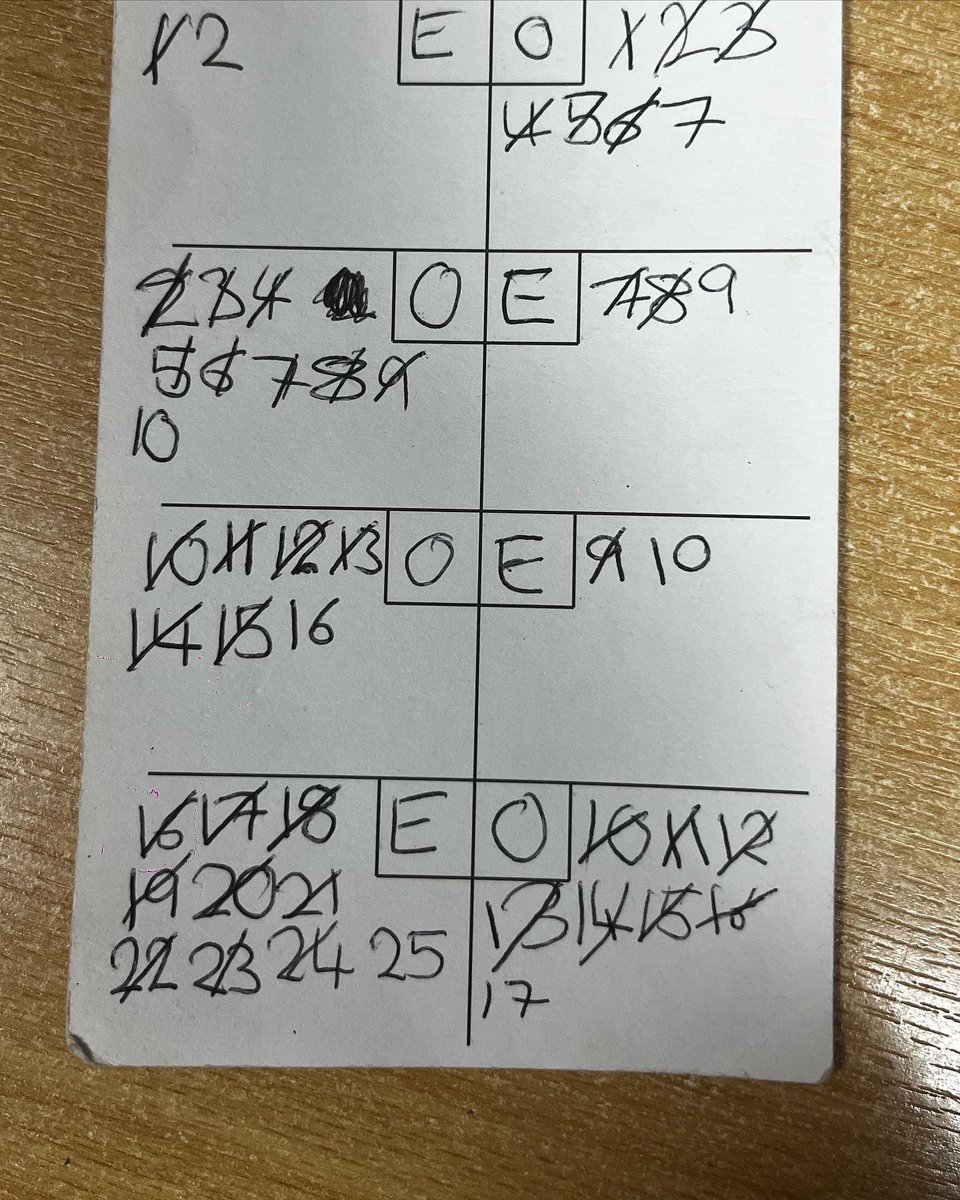 1 2 E O 1 2 3
4 5 6 7
2 3 4 O E 7 8 9
5 6 7 8 9
10
10 11 12 13 O E 9 10
14 15 16
16 17 18 E O 10 11 12
19 20 21 13 14 15 16
22 23 24 25 17